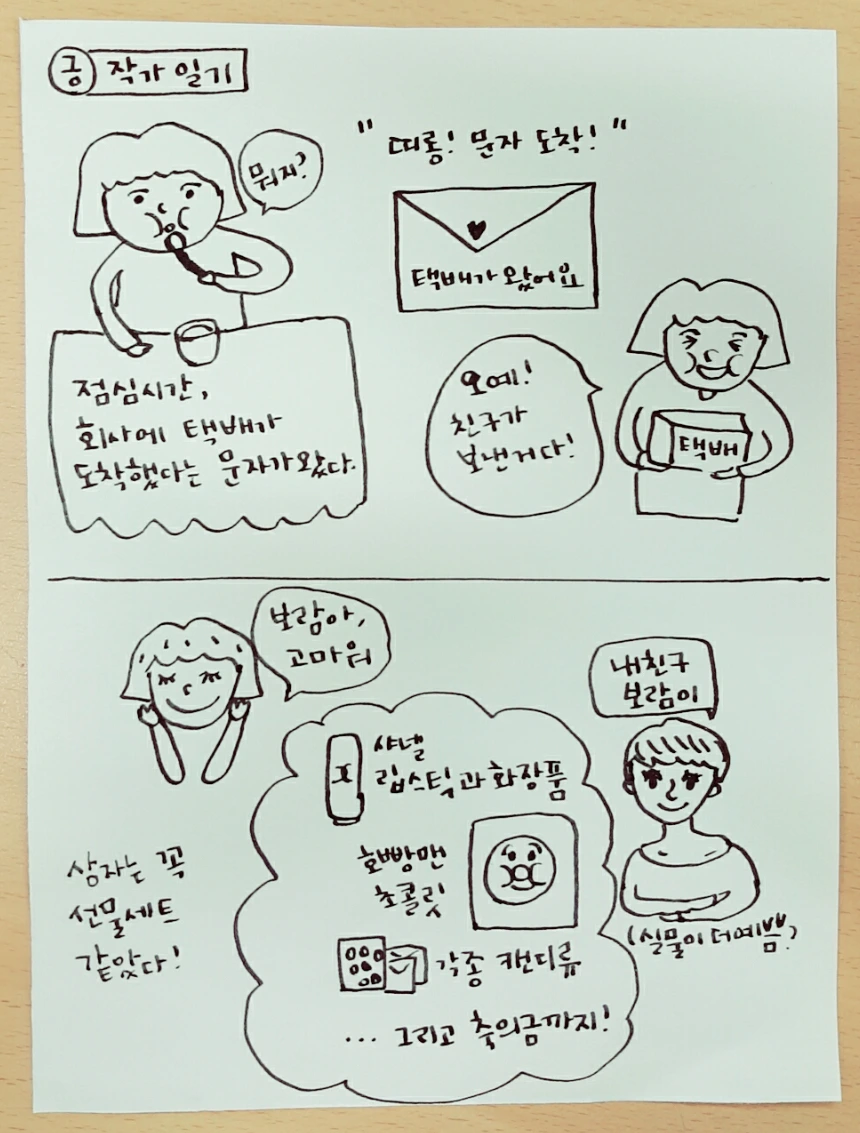 긍 작가 일기
뭐지?
"띠롱! 문자 도착!"
택배가 왔어요
점심시간,
회사에 택배가
도착했다는 문자가왔다.
오예!
친구가
보낸거다!
택배
보람아,
고마워
내친구
보람이
샤넬
립스틱과 화장품
호빵맨
초콜릿
상자는 꼭
선물세트
같았다!
(실물이 더예쁨)
각종 캔디류
... 그리고 축의금까지!